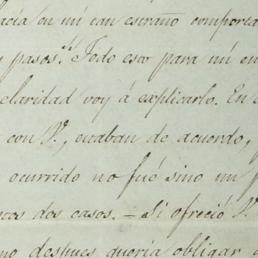 hacia en mi tan estraño comporta
pasos." Todo eso para mi en
claridad voy á explicarlo. En
con V.º, estaban de acuerdo,
ocurrido no fué sino un p
dos casos. — Si ofreció V.
no despues queria obligar a